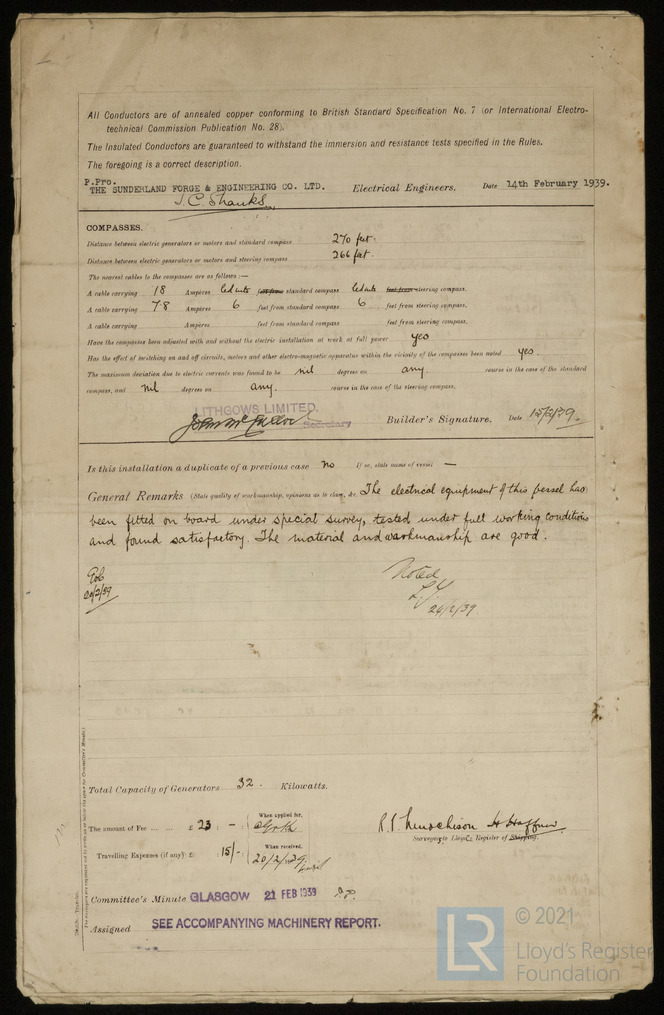 All Conductors are of annealed copper conforming to British Standard Specification No. 7 (or International Electro-
technical Commission Publication No. 28).
The Insulated Conductors are guaranteed to withstand the immersion and resistance tests specified in the Rules.
The foregoing is a correct description.
P.Pro.
THE SUNDERLAND FORGE & ENGINEERING CO. LTD. Electrical Engineers. Date 14th February 1939.
J.C. Shanks
COMPASSES.
Distance between electric generators or motors and standard compass 270 feet.
Distance between electric generators or motors and steering compass 266 feet.
The nearest cables to the compasses are as follows:—
A cable carrying 18 Amperes led into feet from standard compass led into feet from steering compass.
A cable carrying 7.8 Amperes 6 feet from standard compass 6 feet from steering compass.
A cable carrying Amperes feet from standard compass feet from steering compass.
Have the compasses been adjusted with and without the electric installation at work at full power yes
Has the effect of switching on and off circuits, motors and other electro-magnetic apparatus within the vicinity of the compasses been noted yes.
The maximum deviation due to electric currents was found to be nil degrees on any. course in the case of the standard
compass, and nil degrees on any. course in the case of the steering compass.
LITHGOWS LIMITED.
Secretary Builder's Signature. Date 15/2/39.
Is this installation a duplicate of a previous case no If so, state name of vessel —
General Remarks (State quality of workmanship, opinions as to class, &c. The electrical equipment of this vessel has
been fitted on board under special survey, tested under full working conditions
and found satisfactory. The material and workmanship are good.
Noted
20/2/39
24/2/39
Total Capacity of Generators 32. Kilowatts.
The amount of Fee ... ... £ 23 : - : When applied for,
R. Hutchison
Surveyor to Lloyd's Register of Shipping.
Travelling Expenses (if any) £ : 15/- : When received,
20/2/39
Committee's Minute GLASGOW 21 FEB 1939
Assigned SEE ACCOMPANYING MACHINERY REPORT.
LR
© 2021
Lloyd's Register
Foundation